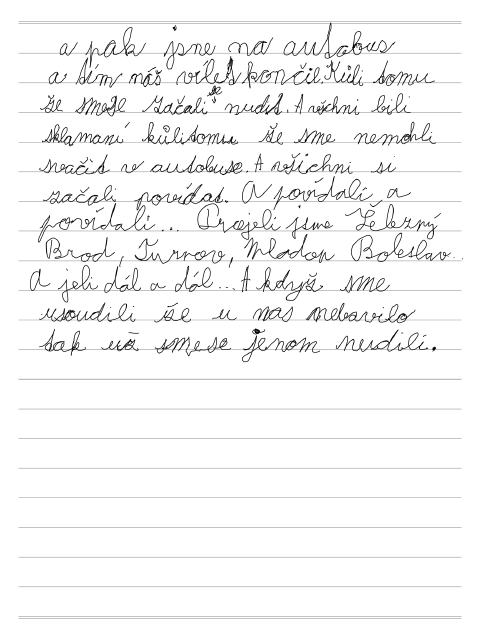 a pak jsne na autobus
a tím náš vílet skončil. Kůli tomu
že smese začali se nudit. A všichni bili
sklamaní kůlitomu že sme nemohli
svačit v autobuse. A všichni si
začali povídat. A povídali a
povídali... Projeli jsme Železný
Brod, Turnov, Mladou Boleslav..
A jeli dál a dál... A když sme
usoudili že u nas nebavilo
tak už smese jenom nudili.